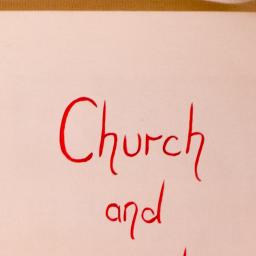 Church
and